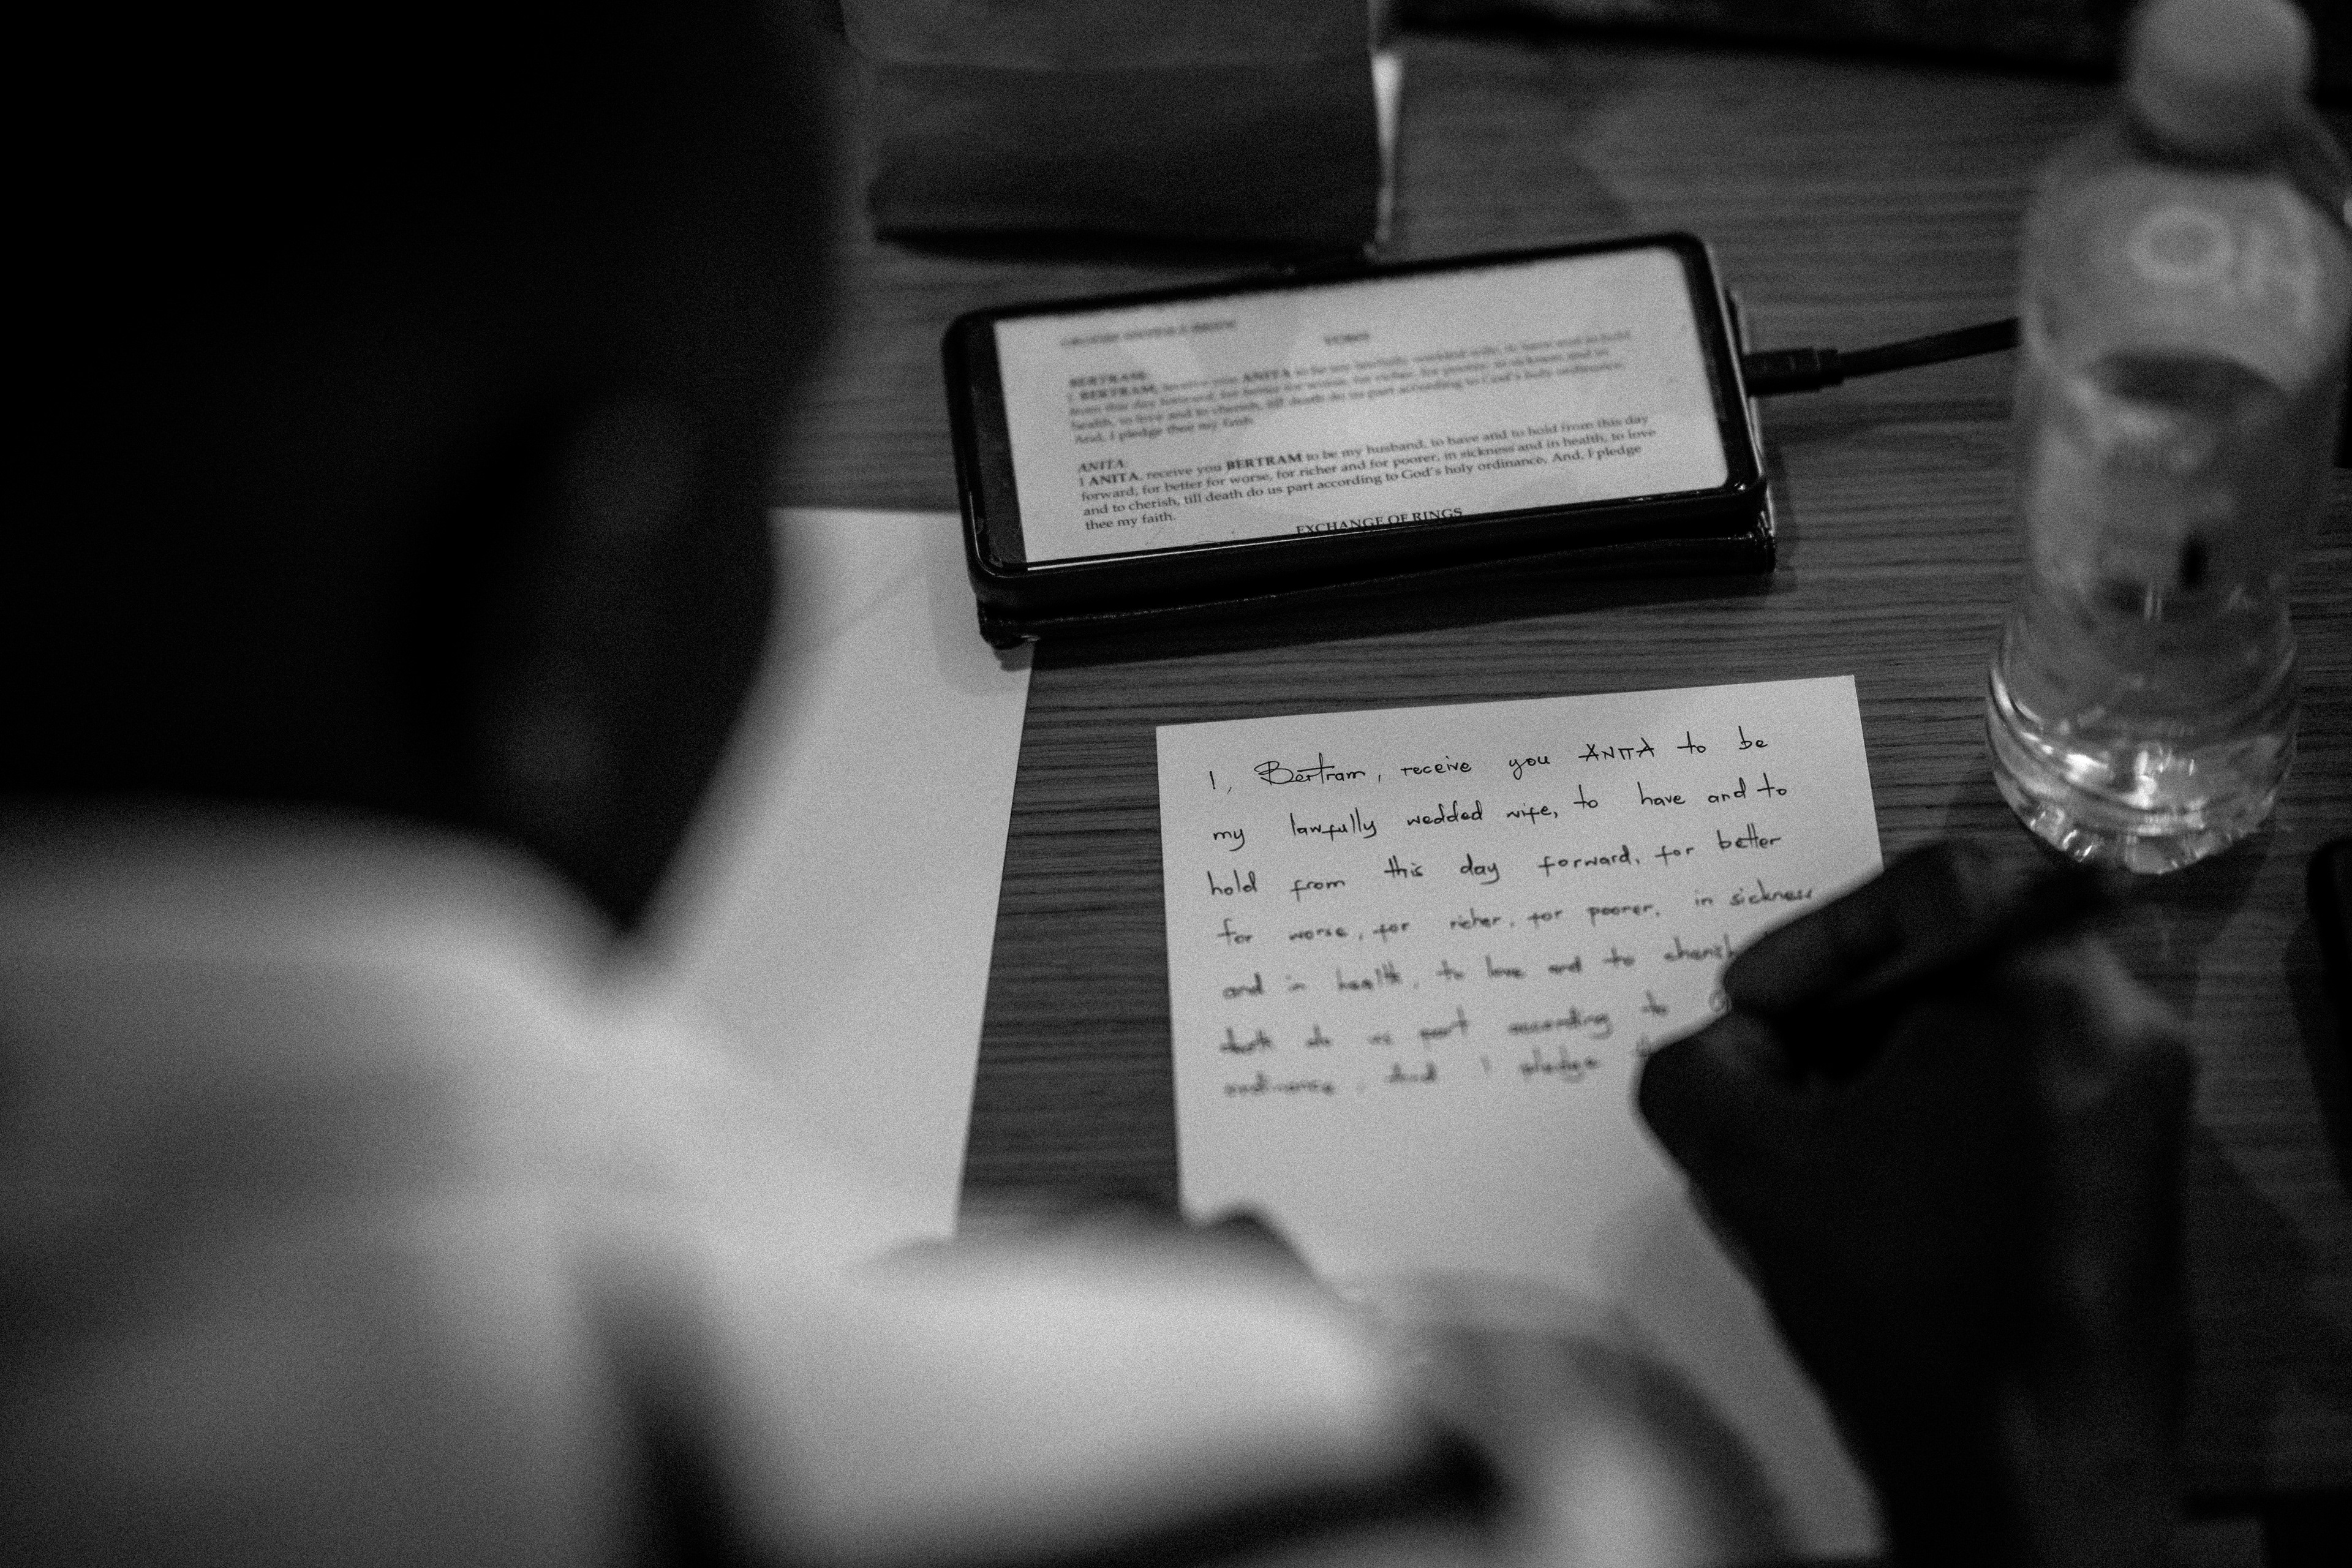 VOWS
BERTRAM
I BERTRAM, receive you ANITA to be my lawfully wedded wife, to have and to hold
from this day forward, for better for worse, for richer, for poorer, in sickness and in
health, to love and to cherish, till death do us part according to God's holy ordinance.
And, I pledge thee my faith.
ANITA
I ANITA, receive you BERTRAM to be my husband, to have and to hold from this day
forward, for better for worse, for richer and for poorer, in sickness and in health, to love
and to cherish, till death do us part according to God's holy ordinance, And, I pledge
thee my faith.
EXCHANGE OF RINGS
I, Bertram, receive you ANITA to be
my lawfully wedded wife, to have and to
hold from this day forward, for better
for worse, for richer, for poorer, in sickness
and in health, to love and to cherish
death do us part according to
ordinance. And I pledge